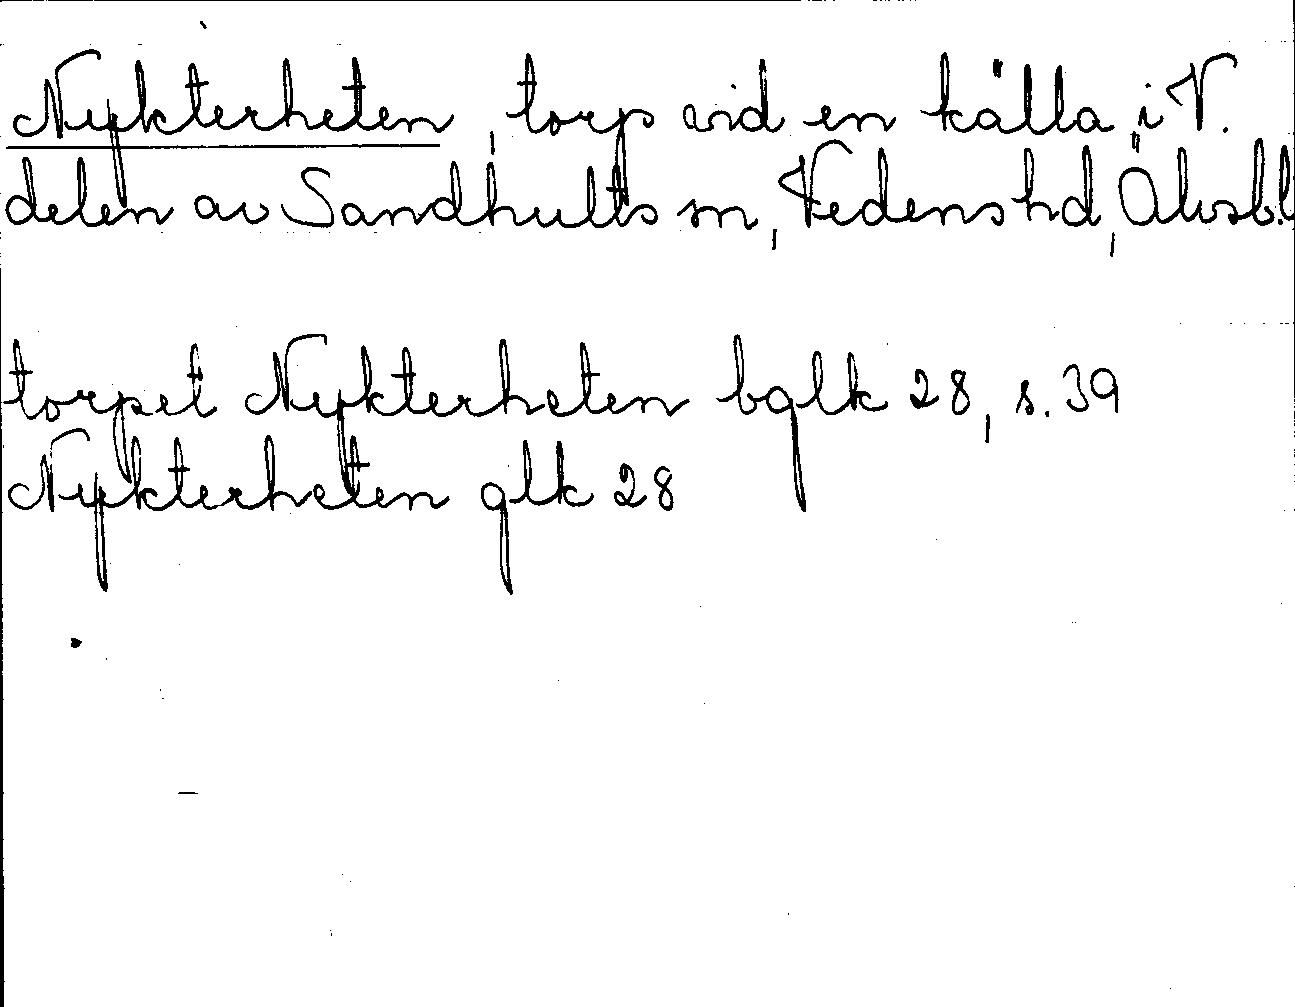 Nykterheten, torp vid en källa i V.
delen av Sandhults sn, Vedens hd, Älvsb.l
torpet Nykterheten bglk 28, s. 39
Nykterheten glk 28